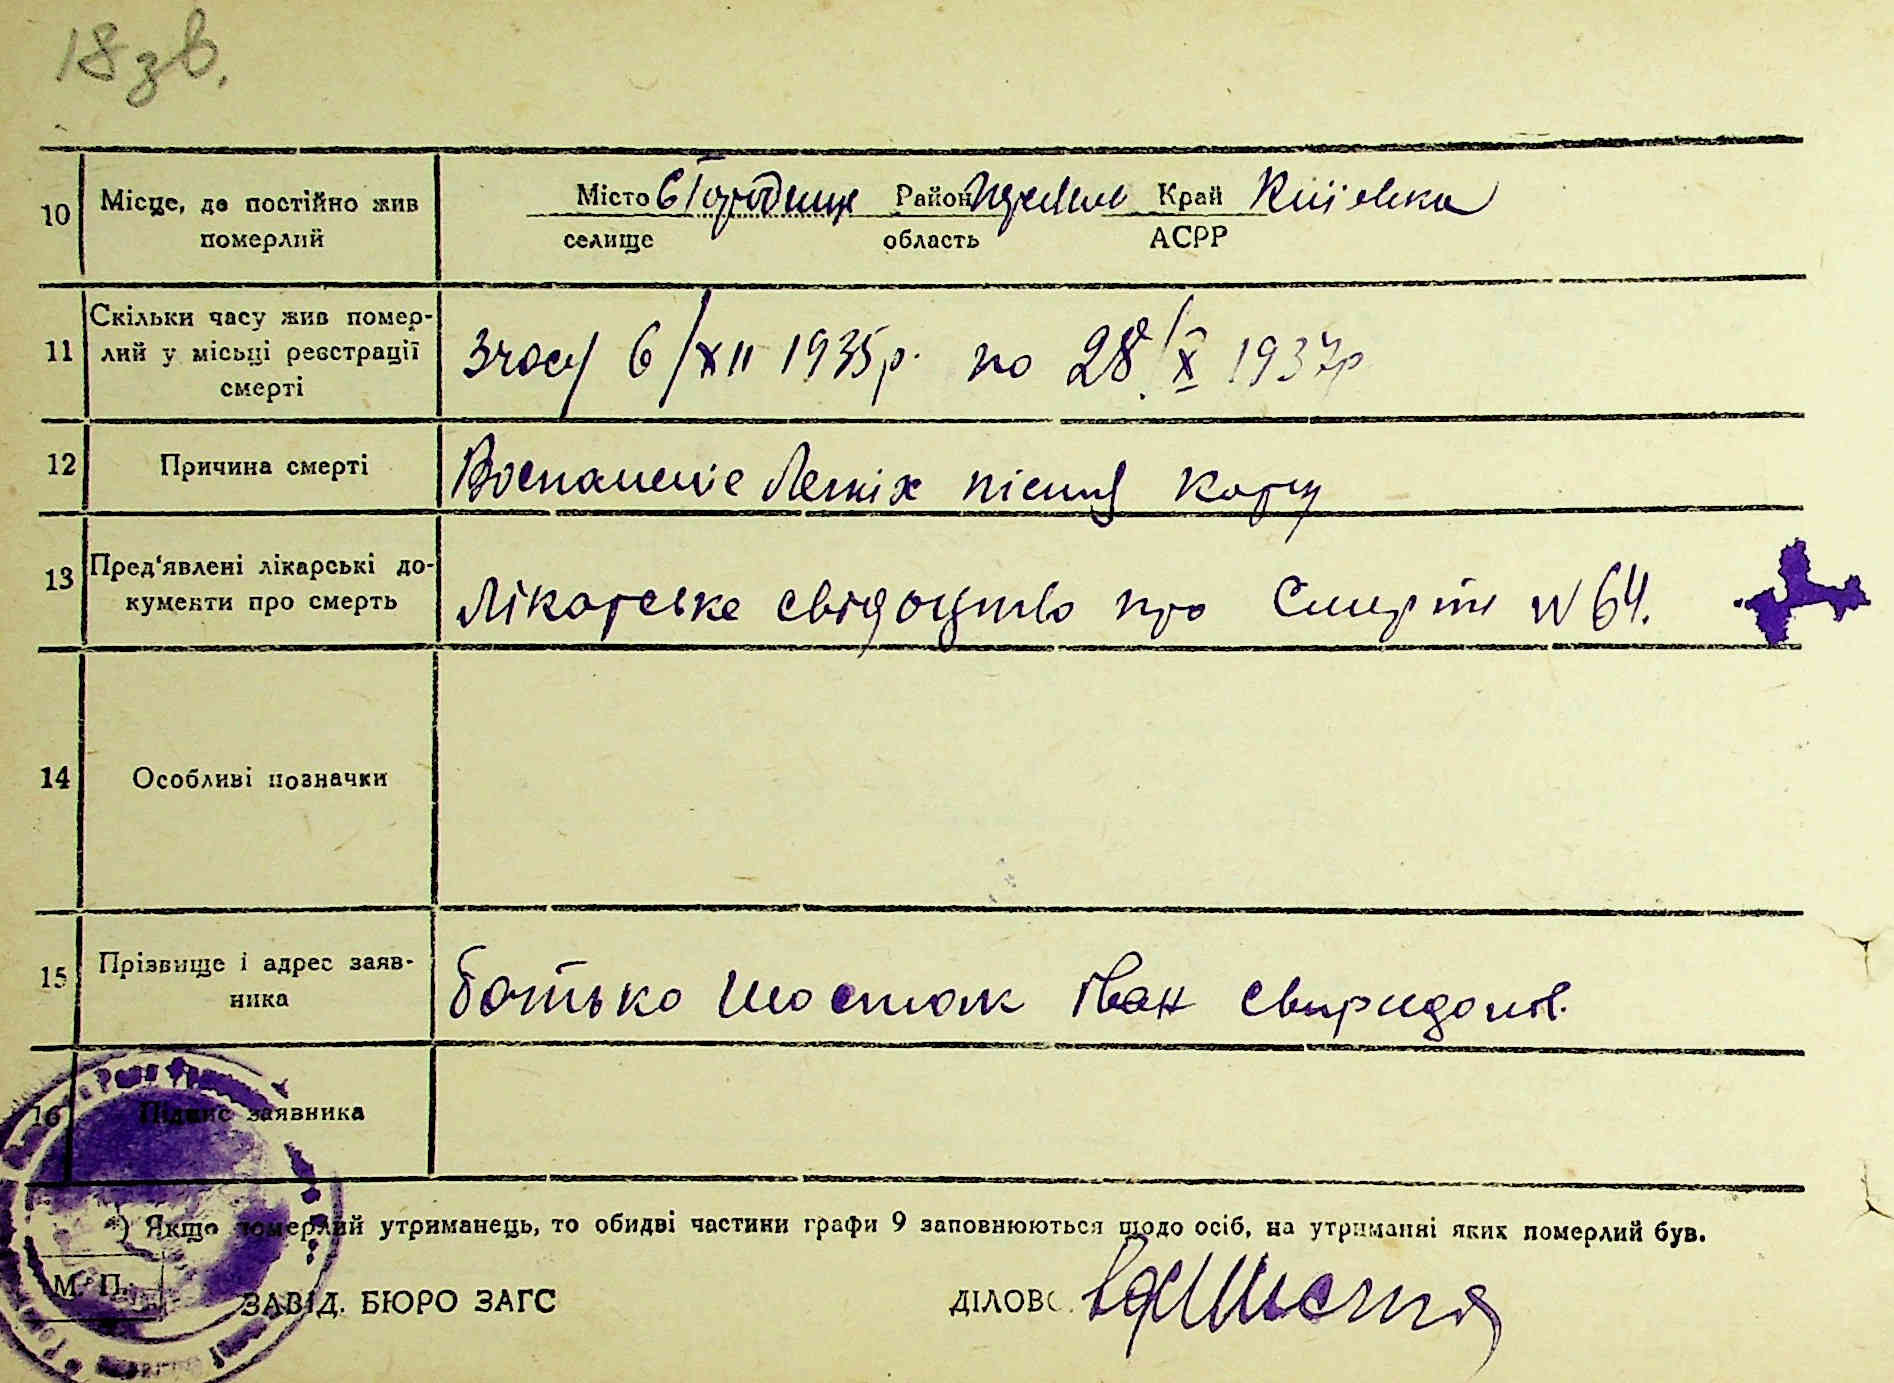 18 зв.
10 Місце, де постійно жив померлий
Місто с Городище Район Край Київська
селище область АСРР
11 Скільки часу жив помер-
лий у місці реєстрації
смерті
Зчасу 6/XII 1935р. по 28/X 1937р
12 Причина смерті
Воспаленіе Легкіх після кору
13 Пред'явлені лікарські до-
кументи про смерть
Лікарське свідоцтво про Смерть N 64.
14 Особливі позначки
15 Прізвище і адрес заяв-
ника
батько Шостак Іван Свиридонов.
16 Підпис заявника
*) Якщо померлий утриманець, то обидві частини графи 9 заповнюються щодо осіб, на утриманні яких померлий був.
М. П.
ЗАВІД. БЮРО ЗАГС ДІЛОВ